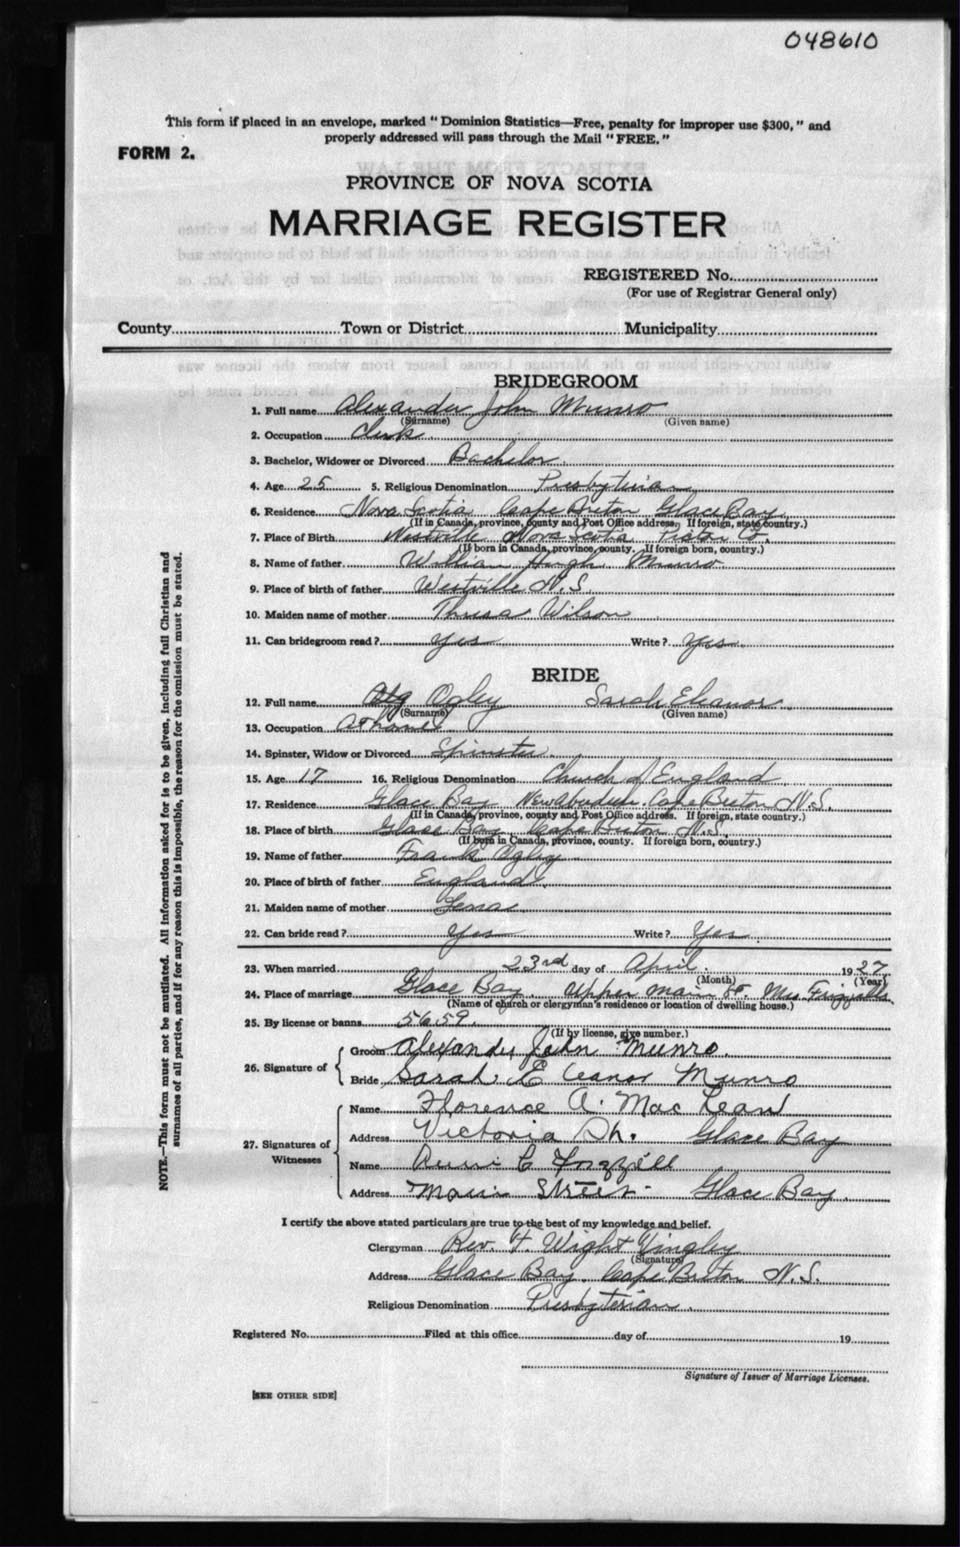 048610
This form if placed in an envelope, marked "Dominion Statistics—Free, penalty for improper use $300," and
properly addressed will pass through the Mail "FREE."
FORM 2.
PROVINCE OF NOVA SCOTIA
MARRIAGE REGISTER
REGISTERED No.
(For use of Registrar General only)
County Town or District Municipality
BRIDEGROOM
1. Full name Alexander John Munro
(Surname) (Given name)
2. Occupation Clerk
3. Bachelor, Widower or Divorced Bachelor
4. Age 25 5. Religious Denomination Presbyterian
6. Residence Nova Scotia Cape Breton Glace Bay
(If in Canada, province, county and Post Office address. If foreign, state country.)
7. Place of Birth Westville Nova Scotia Pictou Co.
(If born in Canada, province, county. If foreign born, country.)
8. Name of father William Hugh Munro
9. Place of birth of father Westville N.S.
10. Maiden name of mother Thresa Wilson
11. Can bridegroom read? yes Write? yes
BRIDE
12. Full name Ogley Sarah Eleanor
(Surname) (Given name)
13. Occupation At home
14. Spinster, Widow or Divorced Spinster
15. Age 17 16. Religious Denomination Church of England
17. Residence Glace Bay New Aberdeen Cape Breton N.S.
(If in Canada, province, county and Post Office address. If foreign, state country.)
18. Place of birth Glace Bay Cape Breton N.S.
(If born in Canada, province, county. If foreign born, country.)
19. Name of father Frank Ogley
20. Place of birth of father England
21. Maiden name of mother
22. Can bride read? Yes Write? Yes
23. When married 23rd day of April 1927
(Month) (Year)
24. Place of marriage Glace Bay. Upper Main St. Mrs.
(Name of church or clergyman's residence or location of dwelling house.)
25. By license or banns 5659.
(If by license, give number.)
26. Signature of
Groom Alexander John Munro.
Bride Sarah Eleanor Munro
27. Signatures of Witnesses
Name Florence A. Mac Lean
Address Victoria Sh. Glace Bay
Name C.
Address Main Street Glace Bay.
I certify the above stated particulars are true to the best of my knowledge and belief.
Clergyman Rev. Wight
(Signature)
Address Glace Bay. Cape Breton N.S.
Religious Denomination Presbyterian.
Registered No. Filed at this office day of 19
Signature of Issuer of Marriage Licenses.
[SEE OTHER SIDE]
NOTE.—This form must not be mutilated. All information asked for is to be given, including full Christian and
surnames of all parties, and if for any reason this is impossible, the reason for the omission must be stated.